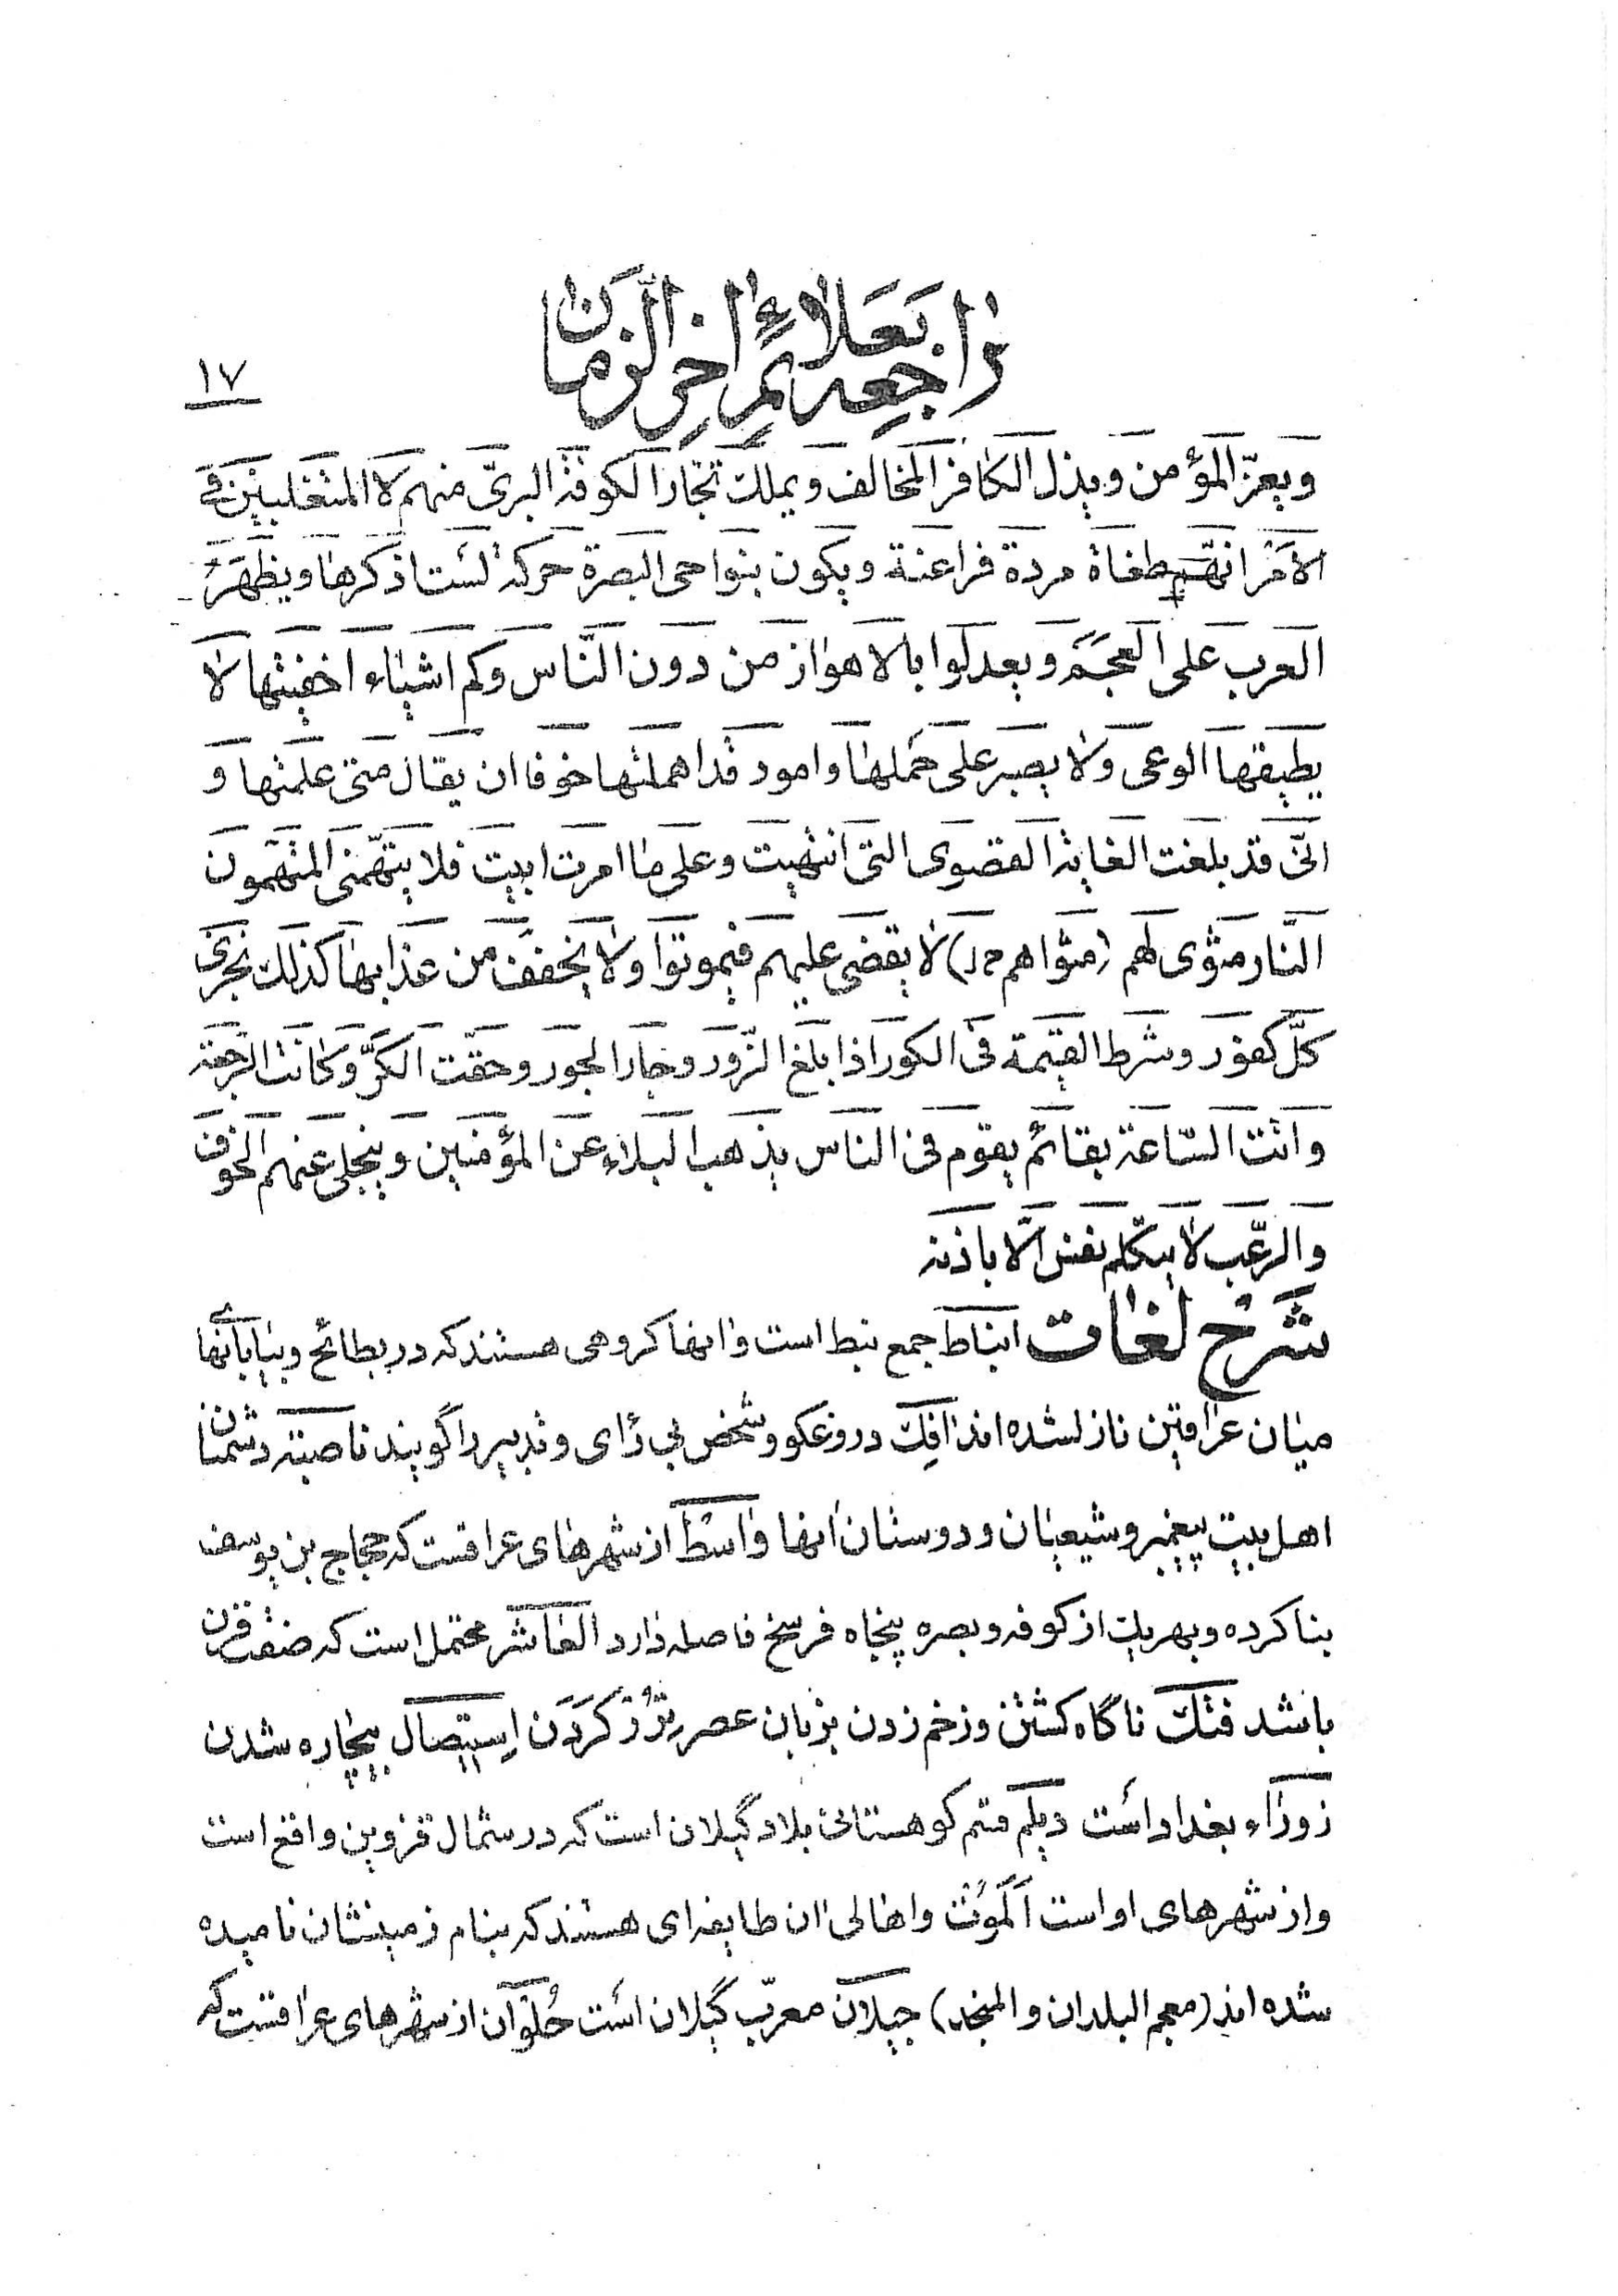 راجعه بعلائم اخر الزمان
۱۷
ويعزّ المؤمن ويذل الكافر المخالف ويملك تجّار الكوفة البرىّ منهم لا المتغلبين فى
الأمر انهّم طغاة مردة فراعنة ويكون بنواحى البصرة حركة لست اذكرها ويظهر
العرب على العجم ويعدلوا بالاهواز من دون النّاس وكم اشياء اخفيتها لا
يطيقها الوعى ولا يصبر على حملها وامور قد اهملتها خوفا ان يقال متى علمتها و
انّى قد بلغت الغاية القصوى التى انتهيت وعلى ما امرت ابيت فلا يتهّمنى المتهمون
النّار مثوى لهم (مثواهم خ‌ل) لا يقضى عليهم فيموتوا ولا يخفف من عذابها كذلك نجزى
كلّ كفور وشرط القيمة فى الكور اذا بلغ الزّور وجار الجور وحقّت الكرّ وكانت الرّجعة
واتت السّاعة بقائم يقوم فى الناس يذهب البلاء عن المؤمنين وينجلى عنهم الخوف
والرّعب لا يتكلّم نفس الّا باذنه
شرح لغات انباط جمع نبط است وانها كروهى هستند كه در بطائح وبيابانهاى
ميان عراقين نازل شده اند افك دروغكو وشخص بى راى وتدبير را گويند ناصبة دشمنان
اهل بيت پيغمبر وشيعيان ودوستان انها واسط از شهرهاى عراقست كه حجاج بن يوسف
بنا كرده وبهريك از كوفه وبصره پنجاه فرسخ فاصله دارد العاشر محتمل است كه صفت قرن
باشد فتك ناگاه كشتن وزخم زدن بزبان عصر تزوّر كردن استيصال بيچاره شدن
زوراء بغداد است ديلم قسم كوهستانى بلاد گيلان است كه در شمال قزوين واقع است
واز شهرهاى او است الموت واهالى ان طايفه اى هستند كه بنام زمينشان ناميده
شده اند (معجم البلدان والمنجد) جيلان معرّب گيلان است حلوان از شهرهاى عراقست كه